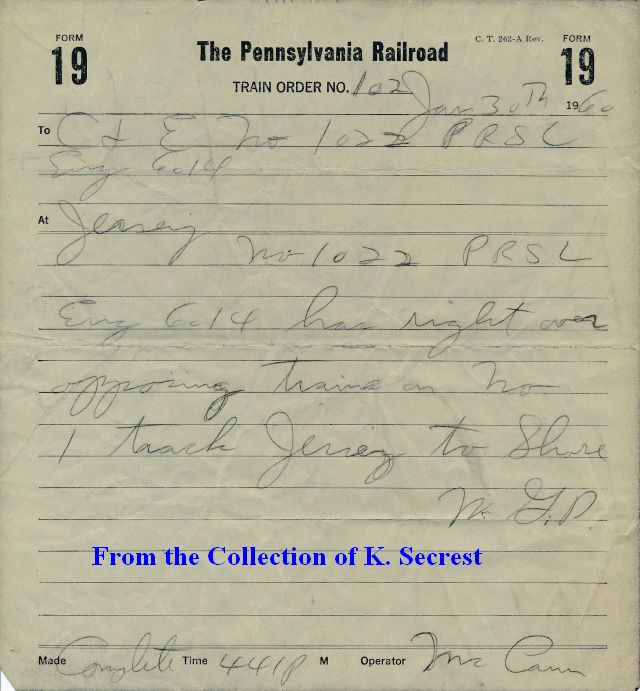 FORM 19
The Pennsylvania Railroad
C. T. 262-A Rev.
FORM 19
TRAIN ORDER NO. 102
Jan 30th 1960
To C & E No 1022 PRSL
Eng 6014
At Jersey
No 1022 PRSL
Eng 6014 has right over
opposing trains on No
1 track Jersey to Shore
G.P.
From the Collection of K. Secrest
Made Complete Time 441P M Operator Mc Cann